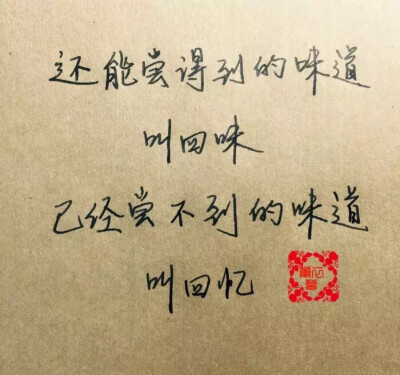 还能尝得到的味道
叫回味
已经尝不到的味道
叫回忆